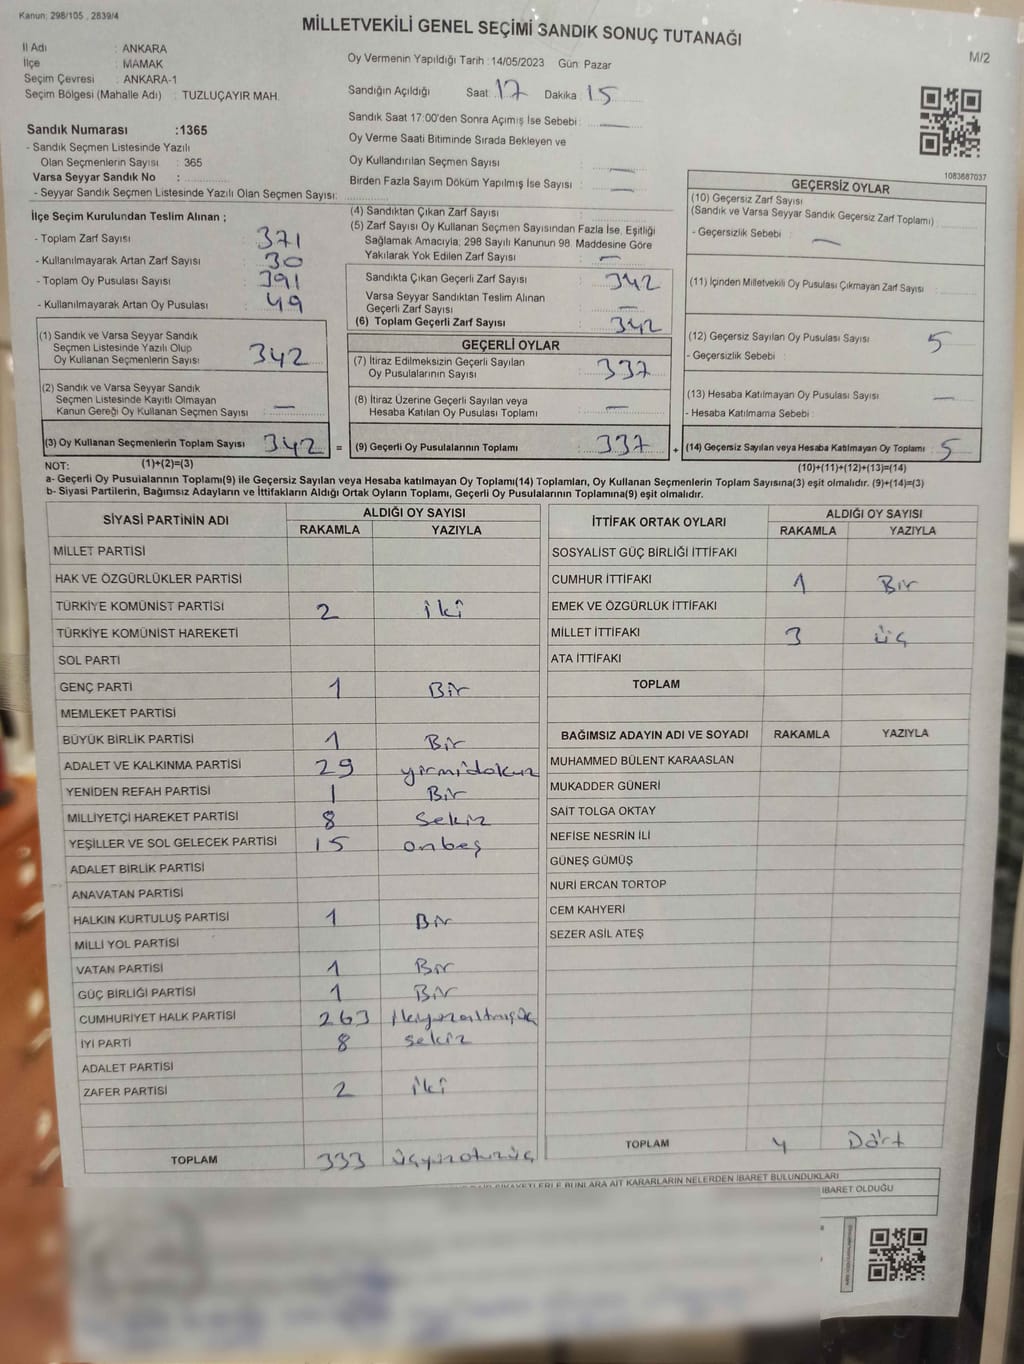 Kanun; 298/105 , 2839/4
MİLLETVEKİLİ GENEL SEÇİMİ SANDIK SONUÇ TUTANAĞI
M/2
İl Adı : ANKARA
İlçe : MAMAK
Seçim Çevresi : ANKARA-1
Seçim Bölgesi (Mahalle Adı) : TUZLUÇAYIR MAH.
Sandık Numarası :1365
- Sandık Seçmen Listesinde Yazılı
Olan Seçmenlerin Sayısı : 365
Varsa Seyyar Sandık No :
- Seyyar Sandık Seçmen Listesinde Yazılı Olan Seçmen Sayısı:
Oy Vermenin Yapıldığı Tarih :14/05/2023 Gün: Pazar
Sandığın Açıldığı Saat: 17 Dakika: 15
Sandık Saat 17:00'den Sonra Açımış İse Sebebi : —
Oy Verme Saati Bitiminde Sırada Bekleyen ve
Oy Kullandırılan Seçmen Sayısı —
Birden Fazla Sayım Döküm Yapılmış İse Sayısı : —
1083687037
İlçe Seçim Kurulundan Teslim Alınan ;
- Toplam Zarf Sayısı 371
- Kullanılmayarak Artan Zarf Sayısı 30
- Toplam Oy Pusulası Sayısı 391
- Kullanılmayarak Artan Oy Pusulası 49
(1) Sandık ve Varsa Seyyar Sandık
Seçmen Listesinde Yazılı Olup
Oy Kullanan Seçmenlerin Sayısı 342
(2) Sandık ve Varsa Seyyar Sandık
Seçmen Listesinde Kayıtlı Olmayan
Kanun Gereği Oy Kullanan Seçmen Sayısı : —
(3) Oy Kullanan Seçmenlerin Toplam Sayısı 342 =
(4) Sandıktan Çıkan Zarf Sayısı
(5) Zarf Sayısı Oy Kullanan Seçmen Sayısından Fazla İse, Eşitliği
Sağlamak Amacıyla; 298 Sayılı Kanunun 98. Maddesine Göre
Yakılarak Yok Edilen Zarf Sayısı —
Sandıkta Çıkan Geçerli Zarf Sayısı 342
Varsa Seyyar Sandıktan Teslim Alınan
Geçerli Zarf Sayısı —
(6) Toplam Geçerli Zarf Sayısı 342
GEÇERLİ OYLAR
(7) İtiraz Edilmeksizin Geçerli Sayılan
Oy Pusulalarının Sayısı 337
(8) İtiraz Üzerine Geçerli Sayılan veya
Hesaba Katılan Oy Pusulası Toplamı —
(9) Geçerli Oy Pusulalarının Toplamı 337 +
GEÇERSİZ OYLAR
(10) Geçersiz Zarf Sayısı
(Sandık ve Varsa Seyyar Sandık Geçersiz Zarf Toplamı)
- Geçersizlik Sebebi : —
(11) İçinden Milletvekili Oy Pusulası Çıkmayan Zarf Sayısı
(12) Geçersiz Sayılan Oy Pusulası Sayısı 5
- Geçersizlik Sebebi :
(13) Hesaba Katılmayan Oy Pusulası Sayısı —
- Hesaba Katılmama Sebebi :
(14) Geçersiz Sayılan veya Hesaba Katılmayan Oy Toplamı 5
NOT: (1)+(2)=(3)
(10)+(11)+(12)+(13)=(14)
a- Geçerli Oy Pusulalarının Toplamı(9) ile Geçersiz Sayılan ve Hesaba katılmayan Oy Toplamı(14) Toplamları, Oy Kullanan Seçmenlerin Toplam Sayısına(3) eşit olmalıdır. (9)+(14)=(3)
b- Siyasi Partilerin, Bağımsız Adayların ve İttifakların Aldığı Ortak Oyların Toplamı, Geçerli Oy Pusulalarının Toplamına(9) eşit olmalıdır.
SİYASİ PARTİNİN ADI ALDIĞI OY SAYISI
RAKAMLA YAZIYLA
MİLLET PARTİSİ
HAK VE ÖZGÜRLÜKLER PARTİSİ
TÜRKİYE KOMÜNİST PARTİSİ 2 iki
TÜRKİYE KOMÜNİST HAREKETİ
SOL PARTİ
GENÇ PARTİ 1 Bir
MEMLEKET PARTİSİ
BÜYÜK BİRLİK PARTİSİ 1 Bir
ADALET VE KALKINMA PARTİSİ 29 yirmidokuz
YENİDEN REFAH PARTİSİ 1 Bir
MİLLİYETÇİ HAREKET PARTİSİ 8 Sekiz
YEŞİLLER VE SOL GELECEK PARTİSİ 15 onbeş
ADALET BİRLİK PARTİSİ
ANAVATAN PARTİSİ
HALKIN KURTULUŞ PARTİSİ 1 Bir
MİLLİ YOL PARTİSİ
VATAN PARTİSİ 1 Bir
GÜÇ BİRLİĞİ PARTİSİ 1 Bir
CUMHURİYET HALK PARTİSİ 263 ikiyüzaltmışüç
İYİ PARTİ 8 sekiz
ADALET PARTİSİ
ZAFER PARTİSİ 2 iki
TOPLAM 333 üçyüzotuzüç
İTTİFAK ORTAK OYLARI ALDIĞI OY SAYISI
RAKAMLA YAZIYLA
SOSYALİST GÜÇ BİRLİĞİ İTTİFAKI
CUMHUR İTTİFAKI 1 Bir
EMEK VE ÖZGÜRLÜK İTTİFAKI
MİLLET İTTİFAKI 3 üç
ATA İTTİFAKI
TOPLAM
BAĞIMSIZ ADAYIN ADI VE SOYADI RAKAMLA YAZIYLA
MUHAMMED BÜLENT KARAASLAN
MUKADDER GÜNERİ
SAİT TOLGA OKTAY
NEFİSE NESRİN İLİ
GÜNEŞ GÜMÜŞ
NURİ ERCAN TORTOP
CEM KAHYERİ
SEZER ASİL ATEŞ
TOPLAM 4 Dört
BUNLARA AİT KARARLARIN NELERDEN İBARET BULUNDUKLARI
İBARET OLDUĞU